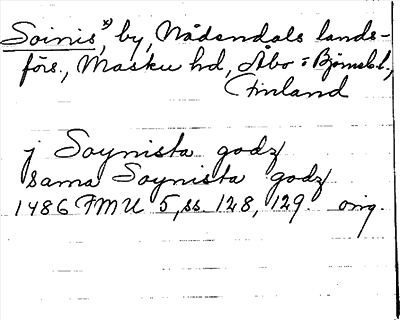 Soinis x), by, Nådendals lands-
förs., Masku hd, Åbo o. Björneb. l.,
Finland
j Soynista godz
sama Soynista godz
1486 FMU 5, ss. 128, 129. orig.